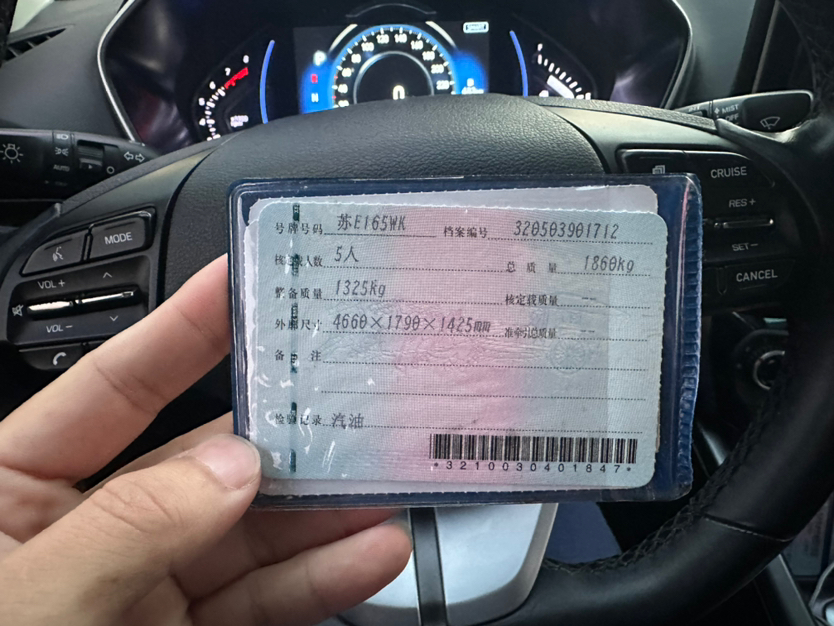 号牌号码 苏E165WK 档案编号 320503901712
核定人数 5人 总质量 1860kg
整备质量 1325kg 核定载质量 --
外廓尺寸 4660×1790×1425mm 准牵引总质量 --
备注
检验记录 汽油
*3210030401847*
MODE
VOL +
VOL –
MIST
OFF
CRUISE
RES +
SET –
CANCEL
AUTO